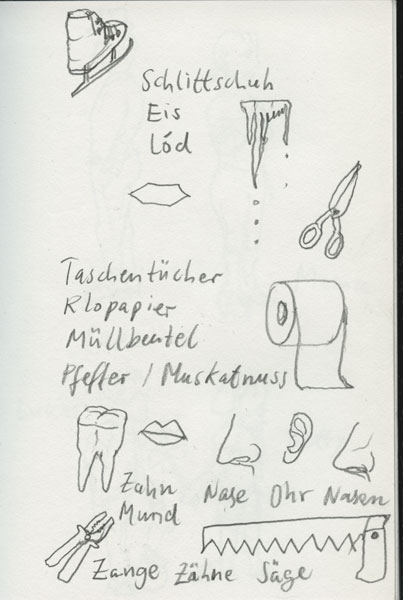 Schlittschuh
Eis
Lód
Taschentücher
Klopapier
Müllbeutel
Pfeffer / Muskatnuss
Zahn
Mund
Nase Ohr Nasen
Zange Zähne Säge